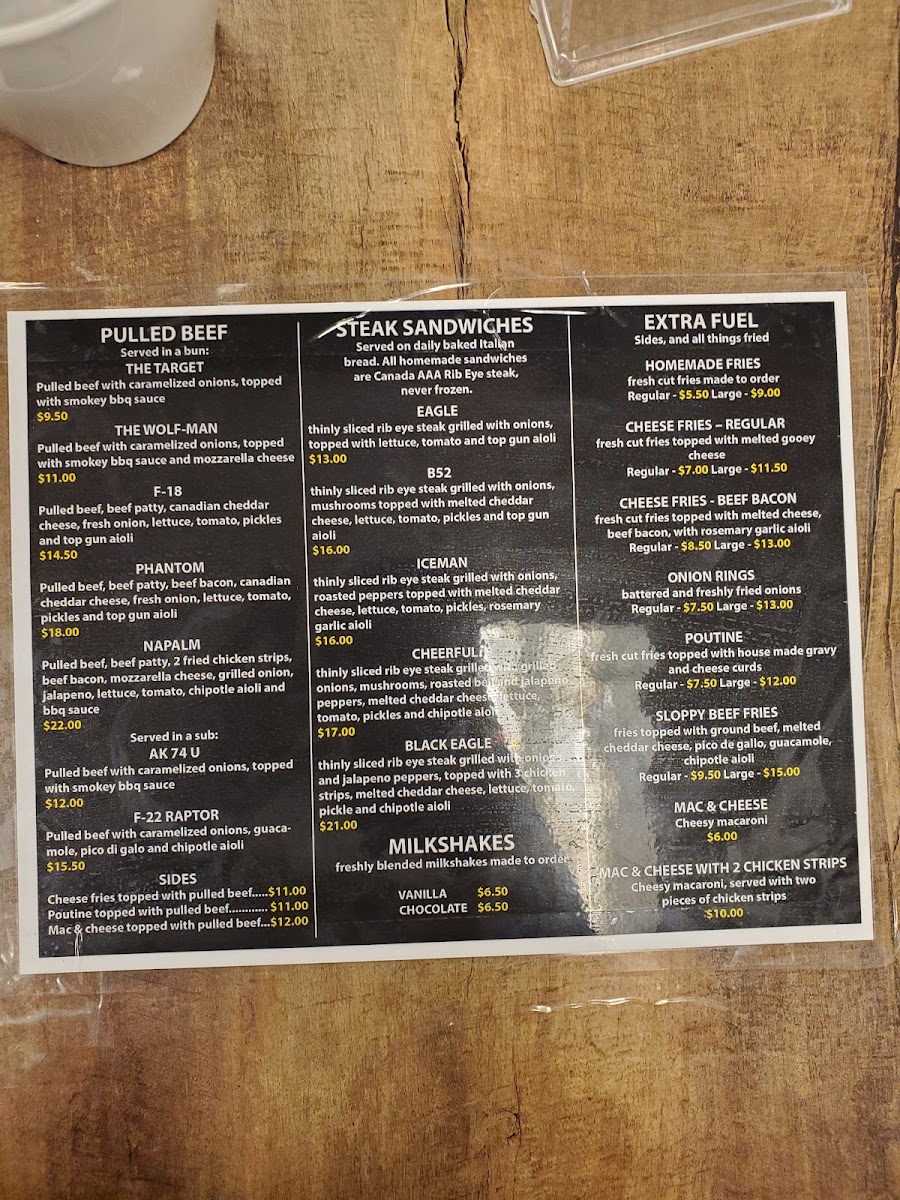 PULLED BEEF
Served in a bun:
THE TARGET
Pulled beef with caramelized onions, topped
with smokey bbq sauce
$9.50
THE WOLF-MAN
Pulled beef with caramelized onions, topped
with smokey bbq sauce and mozzarella cheese
$11.00
F-18
Pulled beef, beef patty, canadian cheddar
cheese, fresh onion, lettuce, tomato, pickles
and top gun aioli
$14.50
PHANTOM
Pulled beef, beef patty, beef bacon, canadian
cheddar cheese, fresh onion, lettuce, tomato,
pickles and top gun aioli
$18.00
NAPALM
Pulled beef, beef patty, 2 fried chicken strips,
beef bacon, mozzarella cheese, grilled onion,
jalapeno, lettuce, tomato, chipotle aioli and
bbq sauce
$22.00
Served in a sub:
AK 74 U
Pulled beef with caramelized onions, topped
with smokey bbq sauce
$12.00
F-22 RAPTOR
Pulled beef with caramelized onions, guaca-
mole, pico di galo and chipotle aioli
$15.50
SIDES
Cheese fries topped with pulled beef.....$11.00
Poutine topped with pulled beef............ $11.00
Mac & cheese topped with pulled beef...$12.00
STEAK SANDWICHES
Served on daily baked Italian
bread. All homemade sandwiches
are Canada AAA Rib Eye steak,
never frozen.
EAGLE
thinly sliced rib eye steak grilled with onions,
topped with lettuce, tomato and top gun aioli
$13.00
B52
thinly sliced rib eye steak grilled with onions,
mushrooms topped with melted cheddar
cheese, lettuce, tomato, pickles and top gun
aioli
$16.00
ICEMAN
thinly sliced rib eye steak grilled with onions,
roasted peppers topped with melted cheddar
cheese, lettuce, tomato, pickles, rosemary
garlic aioli
$16.00
thinly sliced rib eye steak grilled with grilled
onions, mushrooms, roasted bell and jalapeno
peppers, melted cheddar cheese, lettuce,
tomato, pickles and chipotle aioli
$17.00
BLACK EAGLE
thinly sliced rib eye steak grilled with onions
and jalapeno peppers, topped with 3 chicken
strips, melted cheddar cheese, lettuce, tomato,
pickle and chipotle aioli
$21.00
MILKSHAKES
freshly blended milkshakes made to order
VANILLA $6.50
CHOCOLATE $6.50
EXTRA FUEL
Sides, and all things fried
HOMEMADE FRIES
fresh cut fries made to order
Regular - $5.50 Large - $9.00
CHEESE FRIES – REGULAR
fresh cut fries topped with melted gooey
cheese
Regular - $7.00 Large - $11.50
CHEESE FRIES - BEEF BACON
fresh cut fries topped with melted cheese,
beef bacon, with rosemary garlic aioli
Regular - $8.50 Large - $13.00
ONION RINGS
battered and freshly fried onions
Regular - $7.50 Large - $13.00
POUTINE
fresh cut fries topped with house made gravy
and cheese curds
Regular - $7.50 Large - $12.00
SLOPPY BEEF FRIES
fries topped with ground beef, melted
cheddar cheese, pico de gallo, guacamole,
chipotle aioli
Regular - $9.50 Large - $15.00
MAC & CHEESE
Cheesy macaroni
$6.00
MAC & CHEESE WITH 2 CHICKEN STRIPS
Cheesy macaroni, served with two
pieces of chicken strips
$10.00